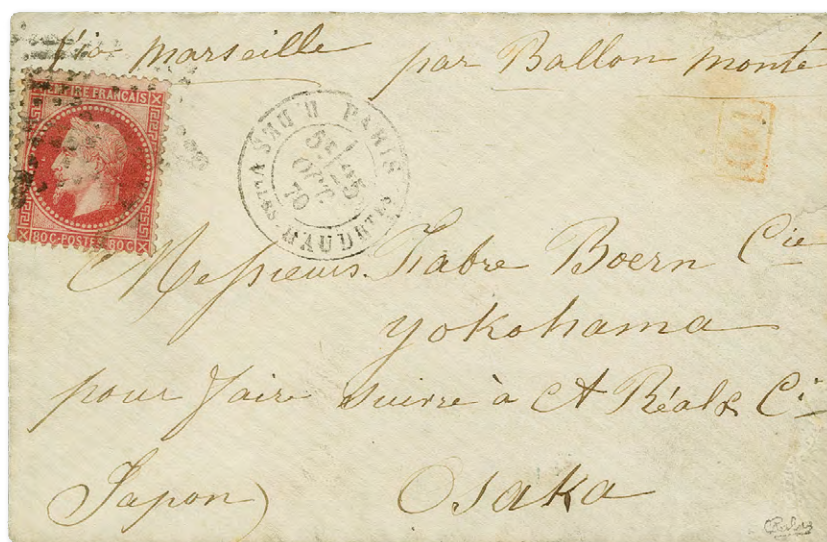 Via marseille par Ballon monté
EMPIRE FRANÇAIS
80C·POSTES·80C
PARIS
OCT
70
Messieurs Fabre Boern Cie
yokohama
pour faire suivre à A Réal & Ci
Japon) Osaka